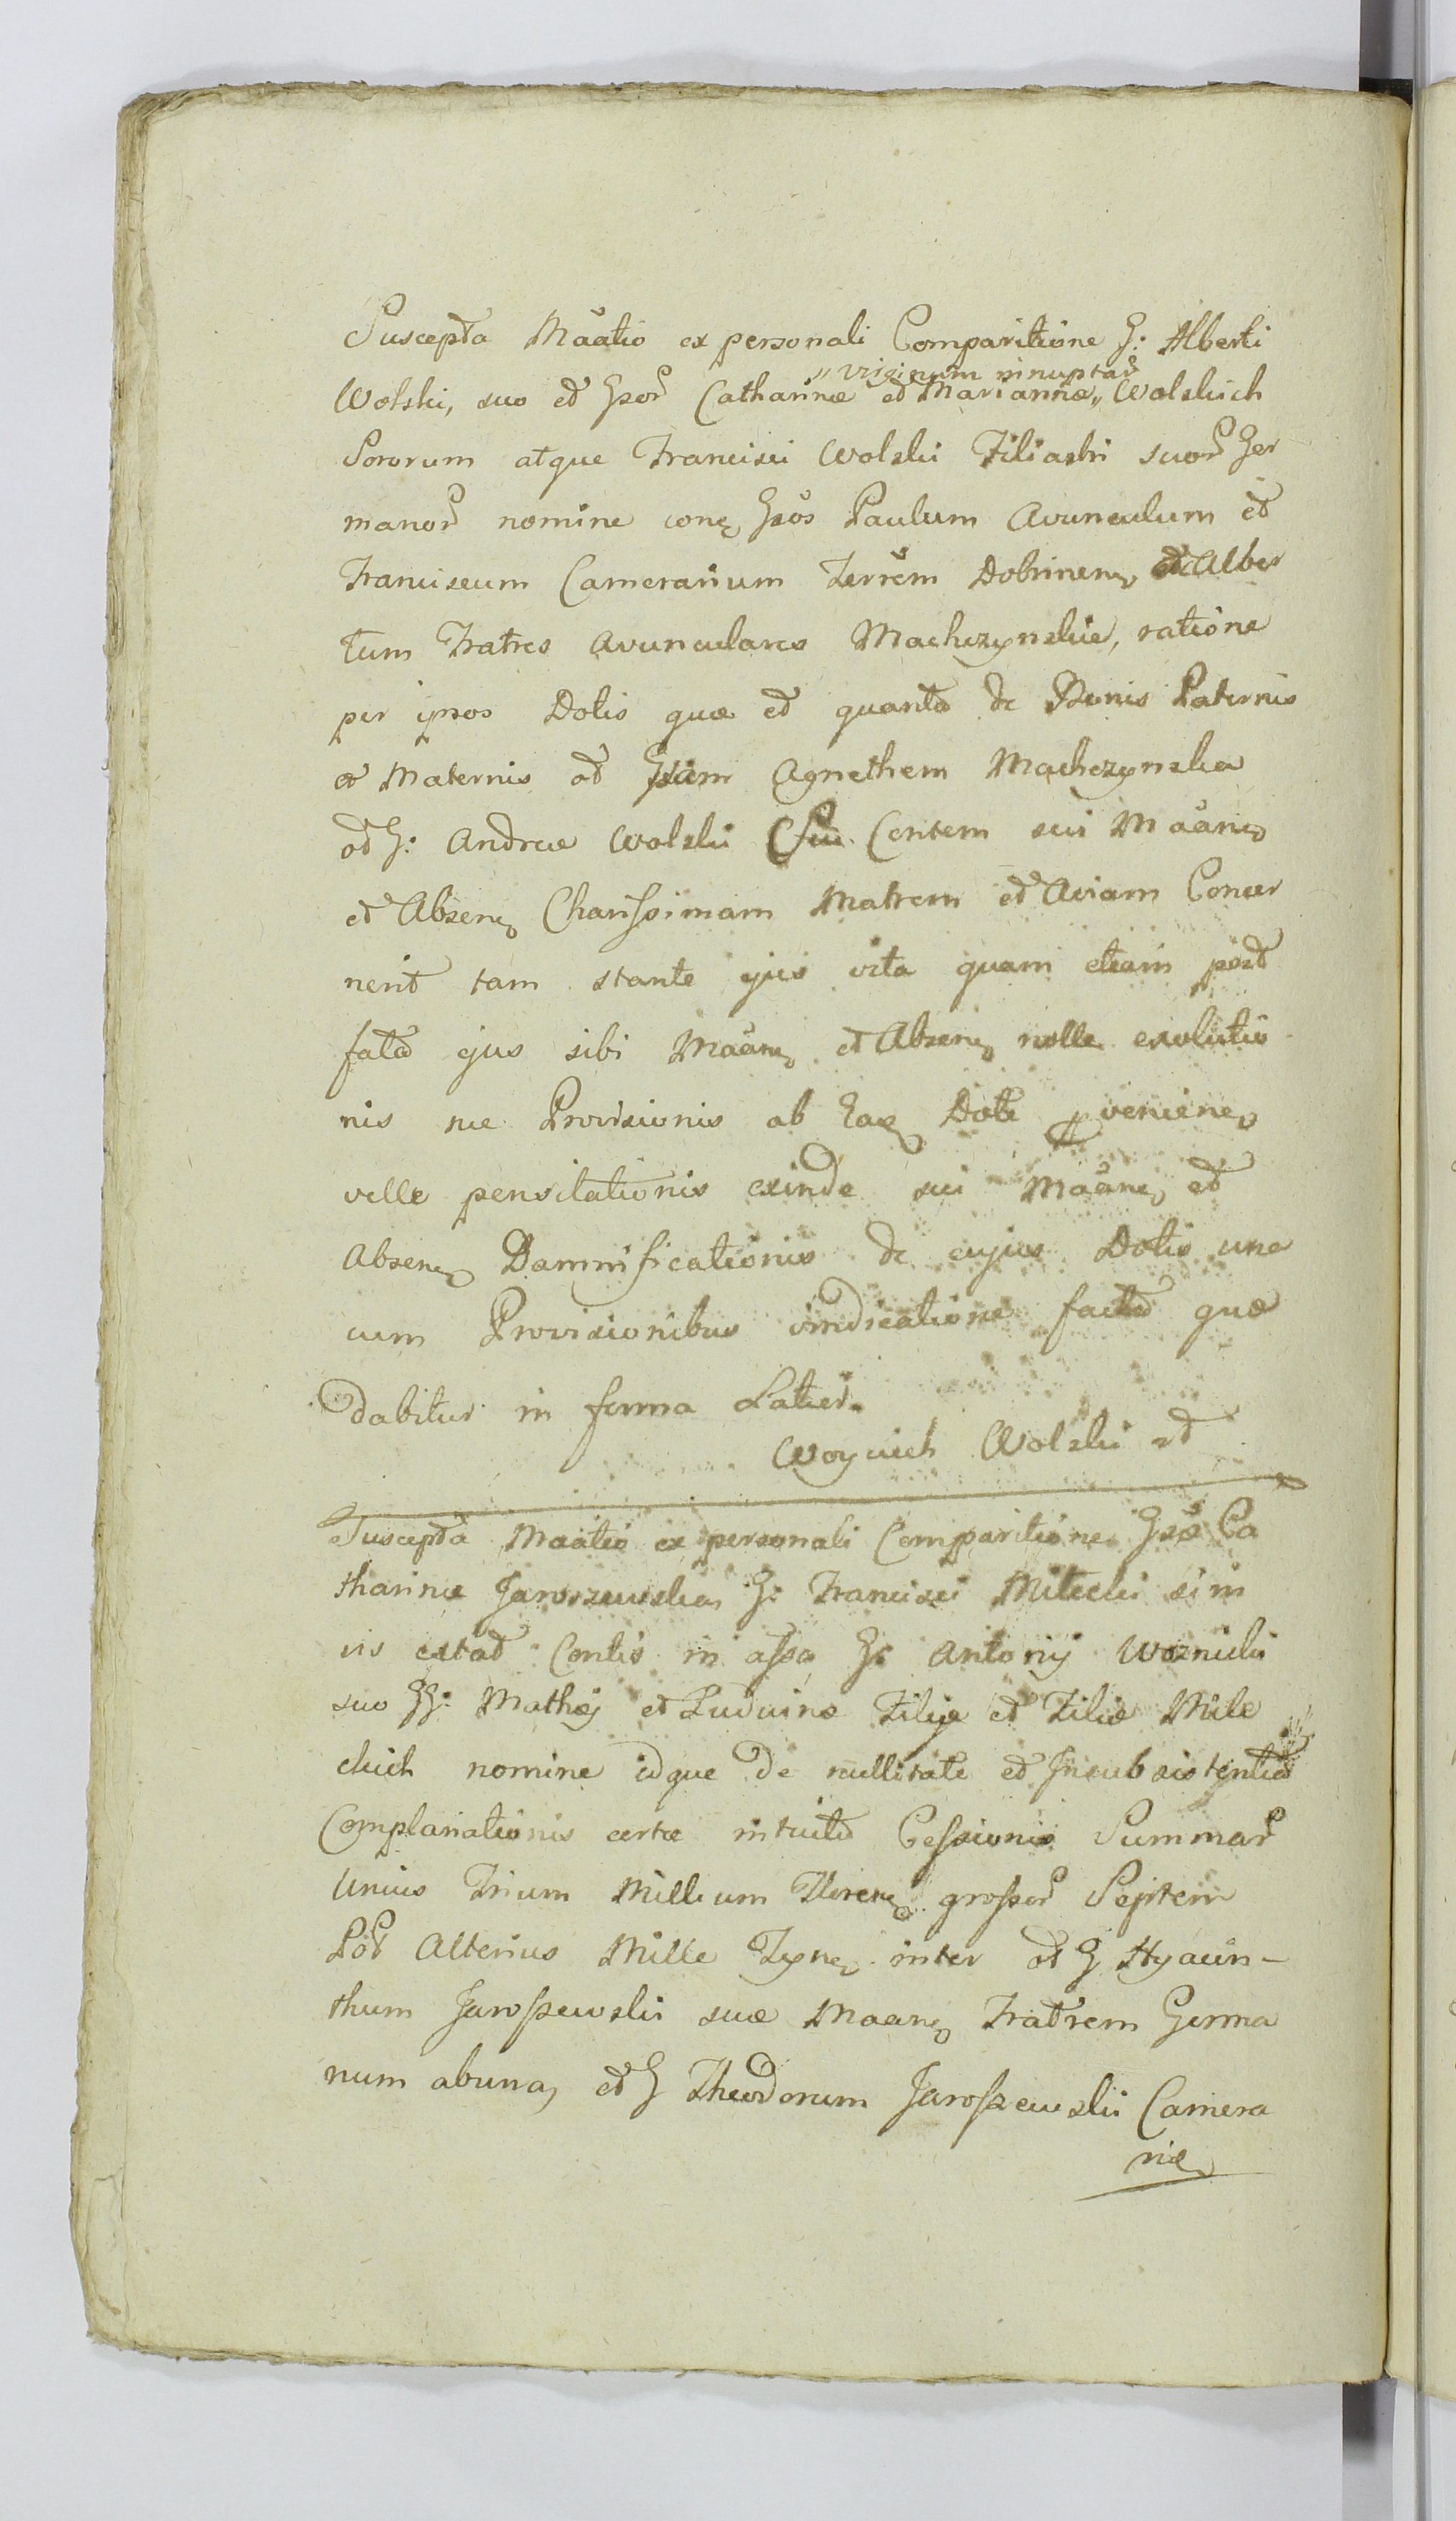 Suscepta Maãtio ex personali Comparitione G: Alberti
„ Virginum innuptar
Wolski, suo et Gsor Catharinæ et Mariannæ „ Wolskich
Sororum atque Francisci Wolski Filiastri suor Ger
manor nomine conq Gsos Paulum Avunculum et
Franciscum Camerarium Terrem Dobrinenq et Alber
tum Fratres Avunculares Machczynskie, ratione
per ipsos Dotis quæ et quanta de Bonis Paternis
et Maternis ad Gsam Agnethem Machczynska
od G: Andreæ Wolski Csui Contem sui Maãnq
et Absenq Charissimam Matrem et Aviam Concer
nerit tam stante ejus vita quam etiam post
fata ejus sibi Maãnq et Absenq nolle exolutio
nis nec Provisionis ab Eaq Dote pvenienq
velle pensitationis exinde sui Maãnq et
Absenq Damnificationis de cujus Dotis una
cum Provisionibus vindicatione facta quæ
dabitur in forma Latior.
Woyciech Wolski
Suscepta Maatio ex personali Comparitione Gsæ Ca
tharinæ Jaroszewska G: Francisci Milecki sim
vis extat Contis in assa G: Antonij Woznicki
suo GG: Mathæj et Ludvinæ Filije et Filiæ Mile
ckich nomine idque de nullitate et Insubsistentia
Complanationis certæ intuitu Cessionis Summar
Unius Trium Millium Florenq grossor Septem
Pol Alterius Mille Tynq inter od G Hyacin-
thum Jaroszewski suæ Maanq Fratrem Germa
num abunaq et G Theodorum Jaroszewski Camera
riæ